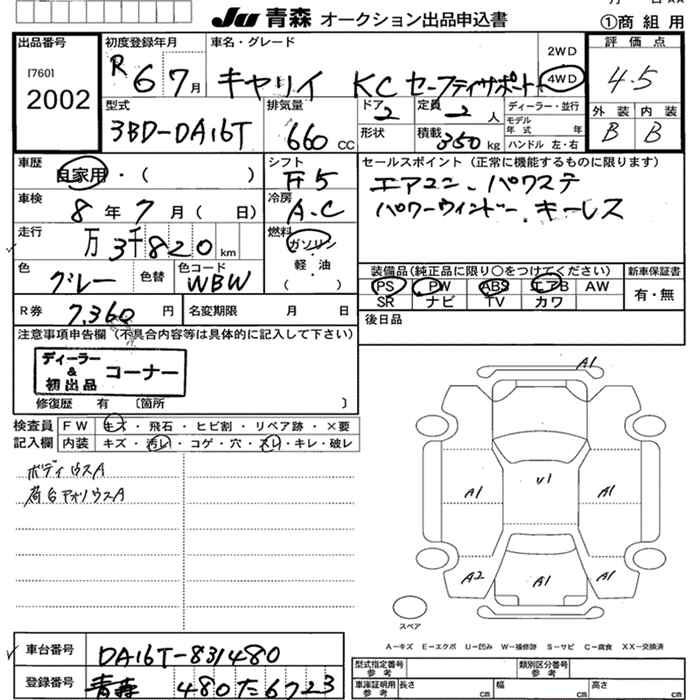 Ju 青森 オークション出品申込書
①商組用
出品番号 初度登録年月 車名・グレード 評価点
[760] 2002
R 6 7月 キャリイ KC セーフティサポート 2WD 4WD 4.5
型式 排気量 ドア 定員 ディーラー・並行 外装 内装
3BD-DA16T 660 CC 2 2人 モデル年式 年 B B
形状 積載 350 kg ハンドル 左・右
車歴 シフト セールスポイント(正常に機能するものに限ります)
自家用・( ) F5 エアコン、パワステ
車検 冷房 パワーウィンドー、キーレス
8年7月(日) A.C
走行 燃料
万3千820km ガソリン
色 色替 色コード 軽・油 装備品(純正品に限り○をつけてください) 新車保証書
グレー WBW ( ) PS PW ABS エアB AW 有・無
SR ナビ TV カワ
R券 7,360円 名変期限 月 日 後日品
注意事項申告欄(不具合内容等は具体的に記入して下さい)
ディーラー & 初出品 コーナー
修復歴 有 〔箇所 〕
検査員 FW キズ・飛石・ヒビ割・リペア跡・×要
記入欄 内装 キズ・汚レ・コゲ・穴・スレ・キレ・破レ
ボディウスA
荷台アオリウスA
A1
A1 U1 A1
A2 A1 A1
スペア
A-キズ E-エクボ U-凹み W-補修跡 S-サビ C-腐食 XX-交換済
車台番号 DA16T-831480
登録番号 青森 480 た 6723
型式指定番号 参考 類別区分番号 参考
車庫証明用 参考 長さ cm 幅 cm 高さ cm